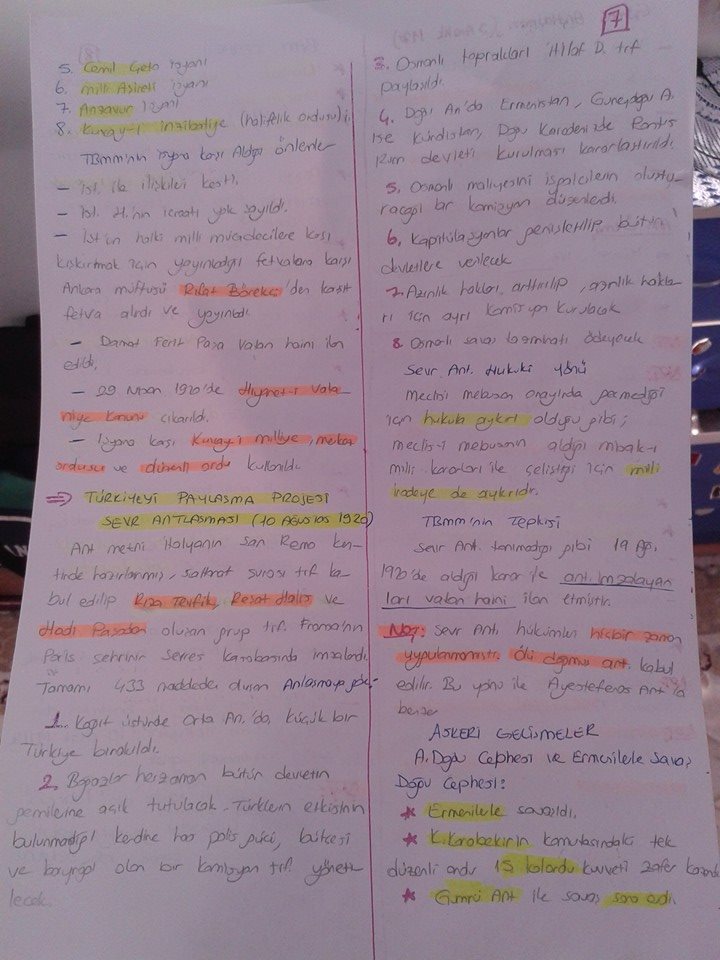 7
5. Cemil Çeto isyanı
6. Milli Aşireti isyanı
7. Anzavur isyanı
8. Kuvay-ı inzibatiye (halifelik ordusu) i.
TBMM'nin isyana karşı Aldığı önlemler
– ist. ile ilişkileri kesti.
– İst. H.'nin icraatı yok sayıldı.
– İst'un halkı milli mücadelere karşı
kışkırtmak için yayınladığı fetvalara karşı
Ankara müftüsü Rıfat Börekçi'den karşıt
fetva alırdı ve yayınladı.
– Damat Ferit Paşa vatan haini ilan
edildi.
– 29 Nisan 1920'de Hıyanet-i Vata-
niye Kanunu çıkarıldı.
– İsyana karşı Kuvay-i milliye,
ordusu ve düzenli ordu kullanıldı.
⇒ TÜRKİYEYİ PAYLAŞMA PROJESİ
SEVR ANTLAŞMASI (10 AĞUSTOS 1920)
Ant metni italyanın San Remo ken-
tinde hazırlanmış, saltanat şurası trf ka-
bul edilip Rıza Tevfik, Reşat Halis ve
Hadi Paşadan oluşan grup trf. Fransa'nın
Paris şehrinin Sevres kasabasında imzalandı.
Tamamı 433 maddeden oluşan Anlaşmaya göre;
1. Kağıt üstünde Orta An.'da, küçük bir
Türkiye bırakıldı.
2. Boğazlar herzaman bütün devletin
gemilerine açık tutulacak. Türklerin etkisinin
bulunmadığı kendine has polis gücü, bütçesi
ve bayrağı olan bir komisyon trf. yöneti-
lecek.
3. Osmanlı toprakları itilaf D. trf
paylaşıldı.
4. Doğu An'da Ermenistan, Güneydoğu A.
ise Kürdistan, Doğu Karadenizde Pontus
Rum devleti kurulması kararlaştırıldı.
5. Osmanlı maliyesini işgalcilerin oluştu-
racağı bir komisyon düzenledi.
6. Kapitülasyonlar genişletilip bütün
devletlere verilecek
7. Azınlık hakları arttırılıp, azınlık hakla-
rı için ayrı komisyon kurulacak
8. Osmanlı savaş tazminatı ödeyecek
Sevr Ant. Hukuki yönü
Meclisi mebusan onayından geçmediği
için hukuka aykırı olduğu gibi;
meclis-i mebusanın aldığı misak-ı
milli kararları ile çeliştiği için milli
iradeye de aykırıdır.
TBMM'nin Tepkisi
Sevr Ant. tanımadığı gibi 19 Ağ.
1920'de aldığı karar ile ant. imzalayan
ları vatan haini ilan etmiştir.
Not: Sevr Ant. hükümleri hiçbir zaman
uygulanmamıştır. Ölü doğmuş ant. kabul
edilir. Bu yönü ile Ayestefanos Ant'la
benzer
ASKERİ GELİŞMELER
A. Doğu Cephesi ve Ermenilerle Savaş
Doğu Cephesi:
★ Ermenilerle savaşıldı.
★ K. Karabekirin komutasındaki tek
düzenli ordu 15 kolordu kuvveti zafer kazandı
★ Gümrü Ant ile savaş sona erdi.